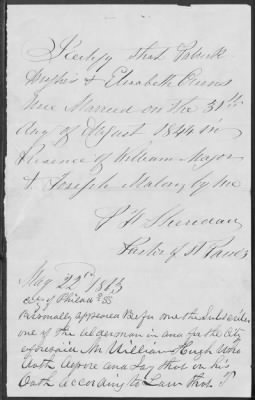 I Certify that Patrick
Hughes & Elizabeth Burns
were Married on the 31st
day of August 1844 in
Presence of William Major
& Joseph Malony by me
P H Sheridan
Pastor of St Paul's
May 22nd 1863
City of Philada SS
Personally appeared Before me the Subscriber
one of the alderman in and for the City
aforesaid Mr William Hugh who
doth depose and Say that on his
Oath according to Law that